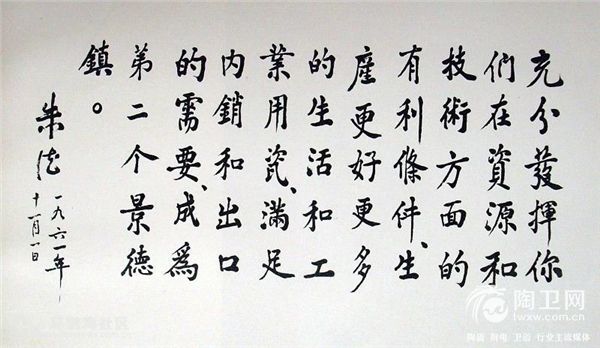 充分發揮你
们在資源和
技術方面的
有利條件、生
産更好更多
的生活和工
業用瓷、滿足
内銷和出口
的需要、成爲
弟二个景德
鎮。
朱德
一九六一年
十一月一日
陶卫网
twxw.com.cn
陶瓷 厨电 卫浴 行业主流媒体